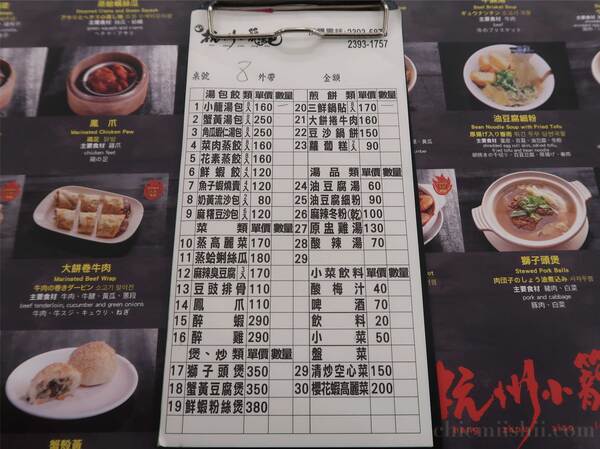 杭州小籠湯包
2393-1757
桌號 8 外帶 金額
湯包餃類 單價 數量
1 小籠湯包 160
2 蟹黃湯包 250
3 角瓜蝦仁湯包 250
4 菜肉蒸餃 160
5 花素蒸餃 160
6 鮮蝦餃 120
7 魚子蝦燒賣 120
8 奶黃流沙包 80
9 麻糬豆沙包 120
菜類 單價 數量
10 蒸高麗菜 170
11 蒸蛤蜊絲瓜 180
12 麻辣臭豆腐 170
13 豆豉排骨 110
14 鳳爪 110
15 醉蝦 290
16 醉雞 290
煲、炒類 單價 數量
17 獅子頭煲 350
18 蟹黃豆腐煲 350
19 鮮蝦粉絲煲 380
煎餅類 單價 數量
20 三鮮鍋貼 170
21 大餅捲牛肉 110
22 豆沙鍋餅 150
23 蘿蔔糕 90
湯品類 單價 數量
24 油豆腐湯 60
25 油豆腐細粉 90
26 麻辣冬粉(乾) 100
27 原盅雞湯 130
28 酸辣湯 70
29
小菜飲料 單價 數量
酸梅汁 40
啤酒 70
飲料 20
小菜 50
盤菜
29 清炒空心菜 150
30 櫻花蝦高麗菜 200
蒸蛤蜊絲瓜
Steamed Clams and Squash
鳳爪
Marinated Chicken Paw
鶏足 닭발
主要食材 雞爪
chicken feet
鶏の足
大餅卷牛肉
Marinated Beef Wrap
牛肉の巻きダービン 소고기 말이전
主要食材 牛肉、牛腱、黃瓜、蔥段
beef tenderloin, cucumber and green onions
牛肉、牛スジ、キュウリ、ねぎ
蟹殼黃
Beef Brisket Soup
油豆腐細粉
Bean Noodle Soup with Fried Tofu
獅子頭煲
Stewed Pork Balls
肉団子のしょう油煮込み 사자두찜
主要食材 豬肉、白菜
pork and cabbage
豚肉、白菜
杭州小籠
HANG ZHOU XIAO
chiemiishii.com